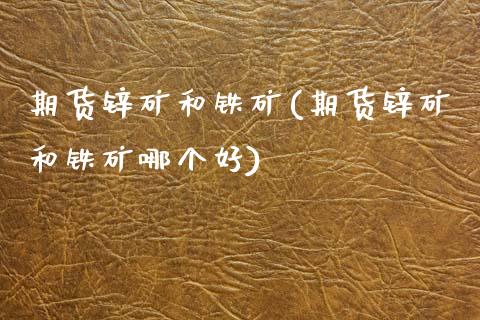 期货锌矿和铁矿(期货锌矿
和铁矿哪个好)